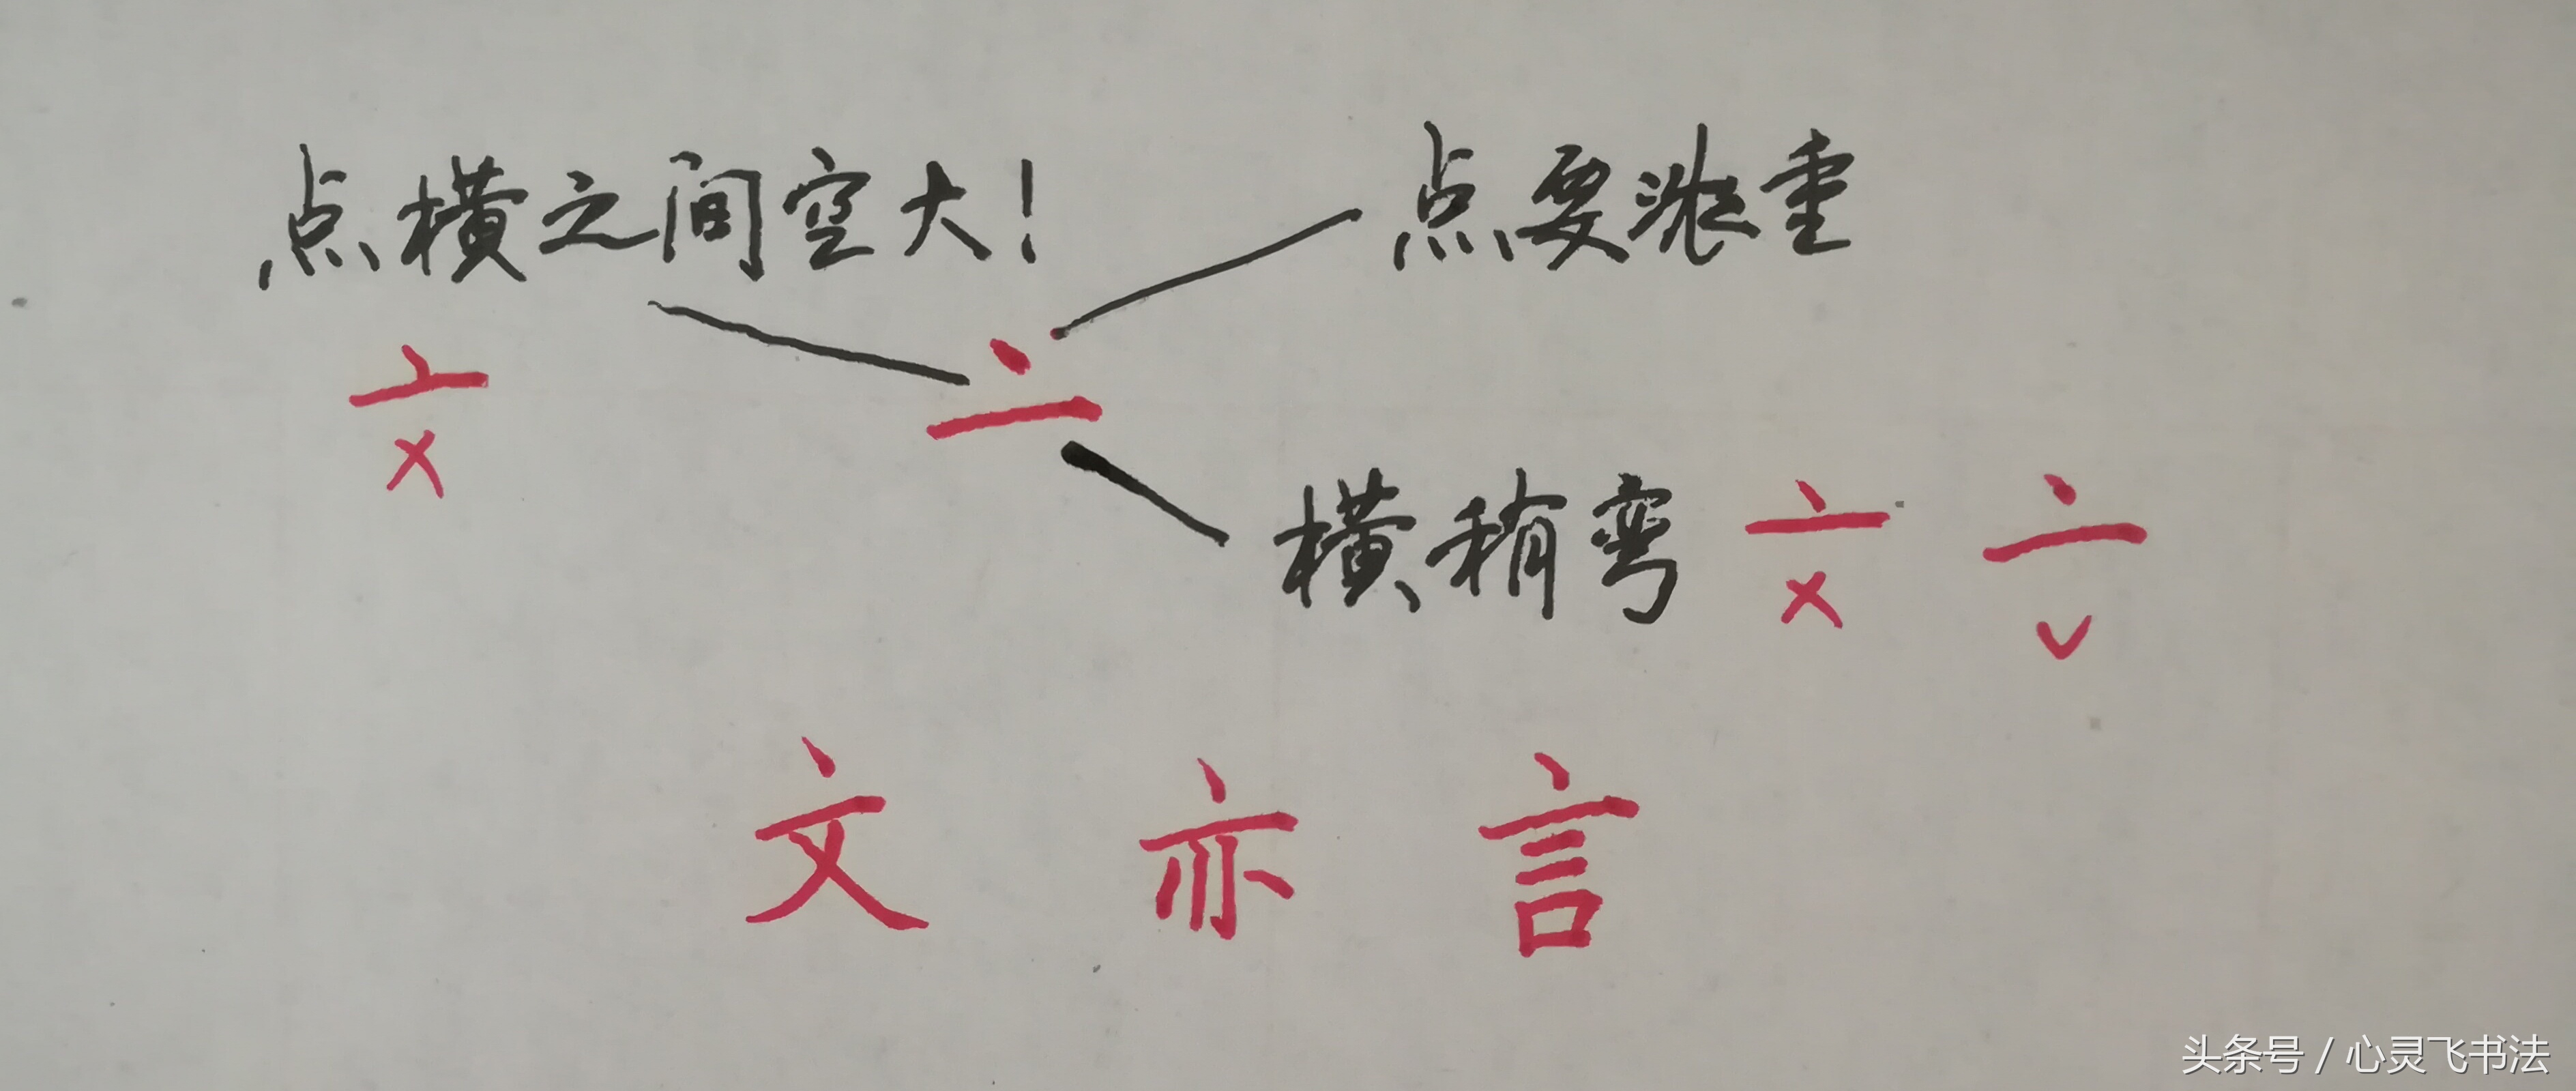 点横之间空大!
点要浓重
亠
亠
×
横稍弯
亠
亠
×
✓
文 亦 言
头条号 / 心灵飞书法